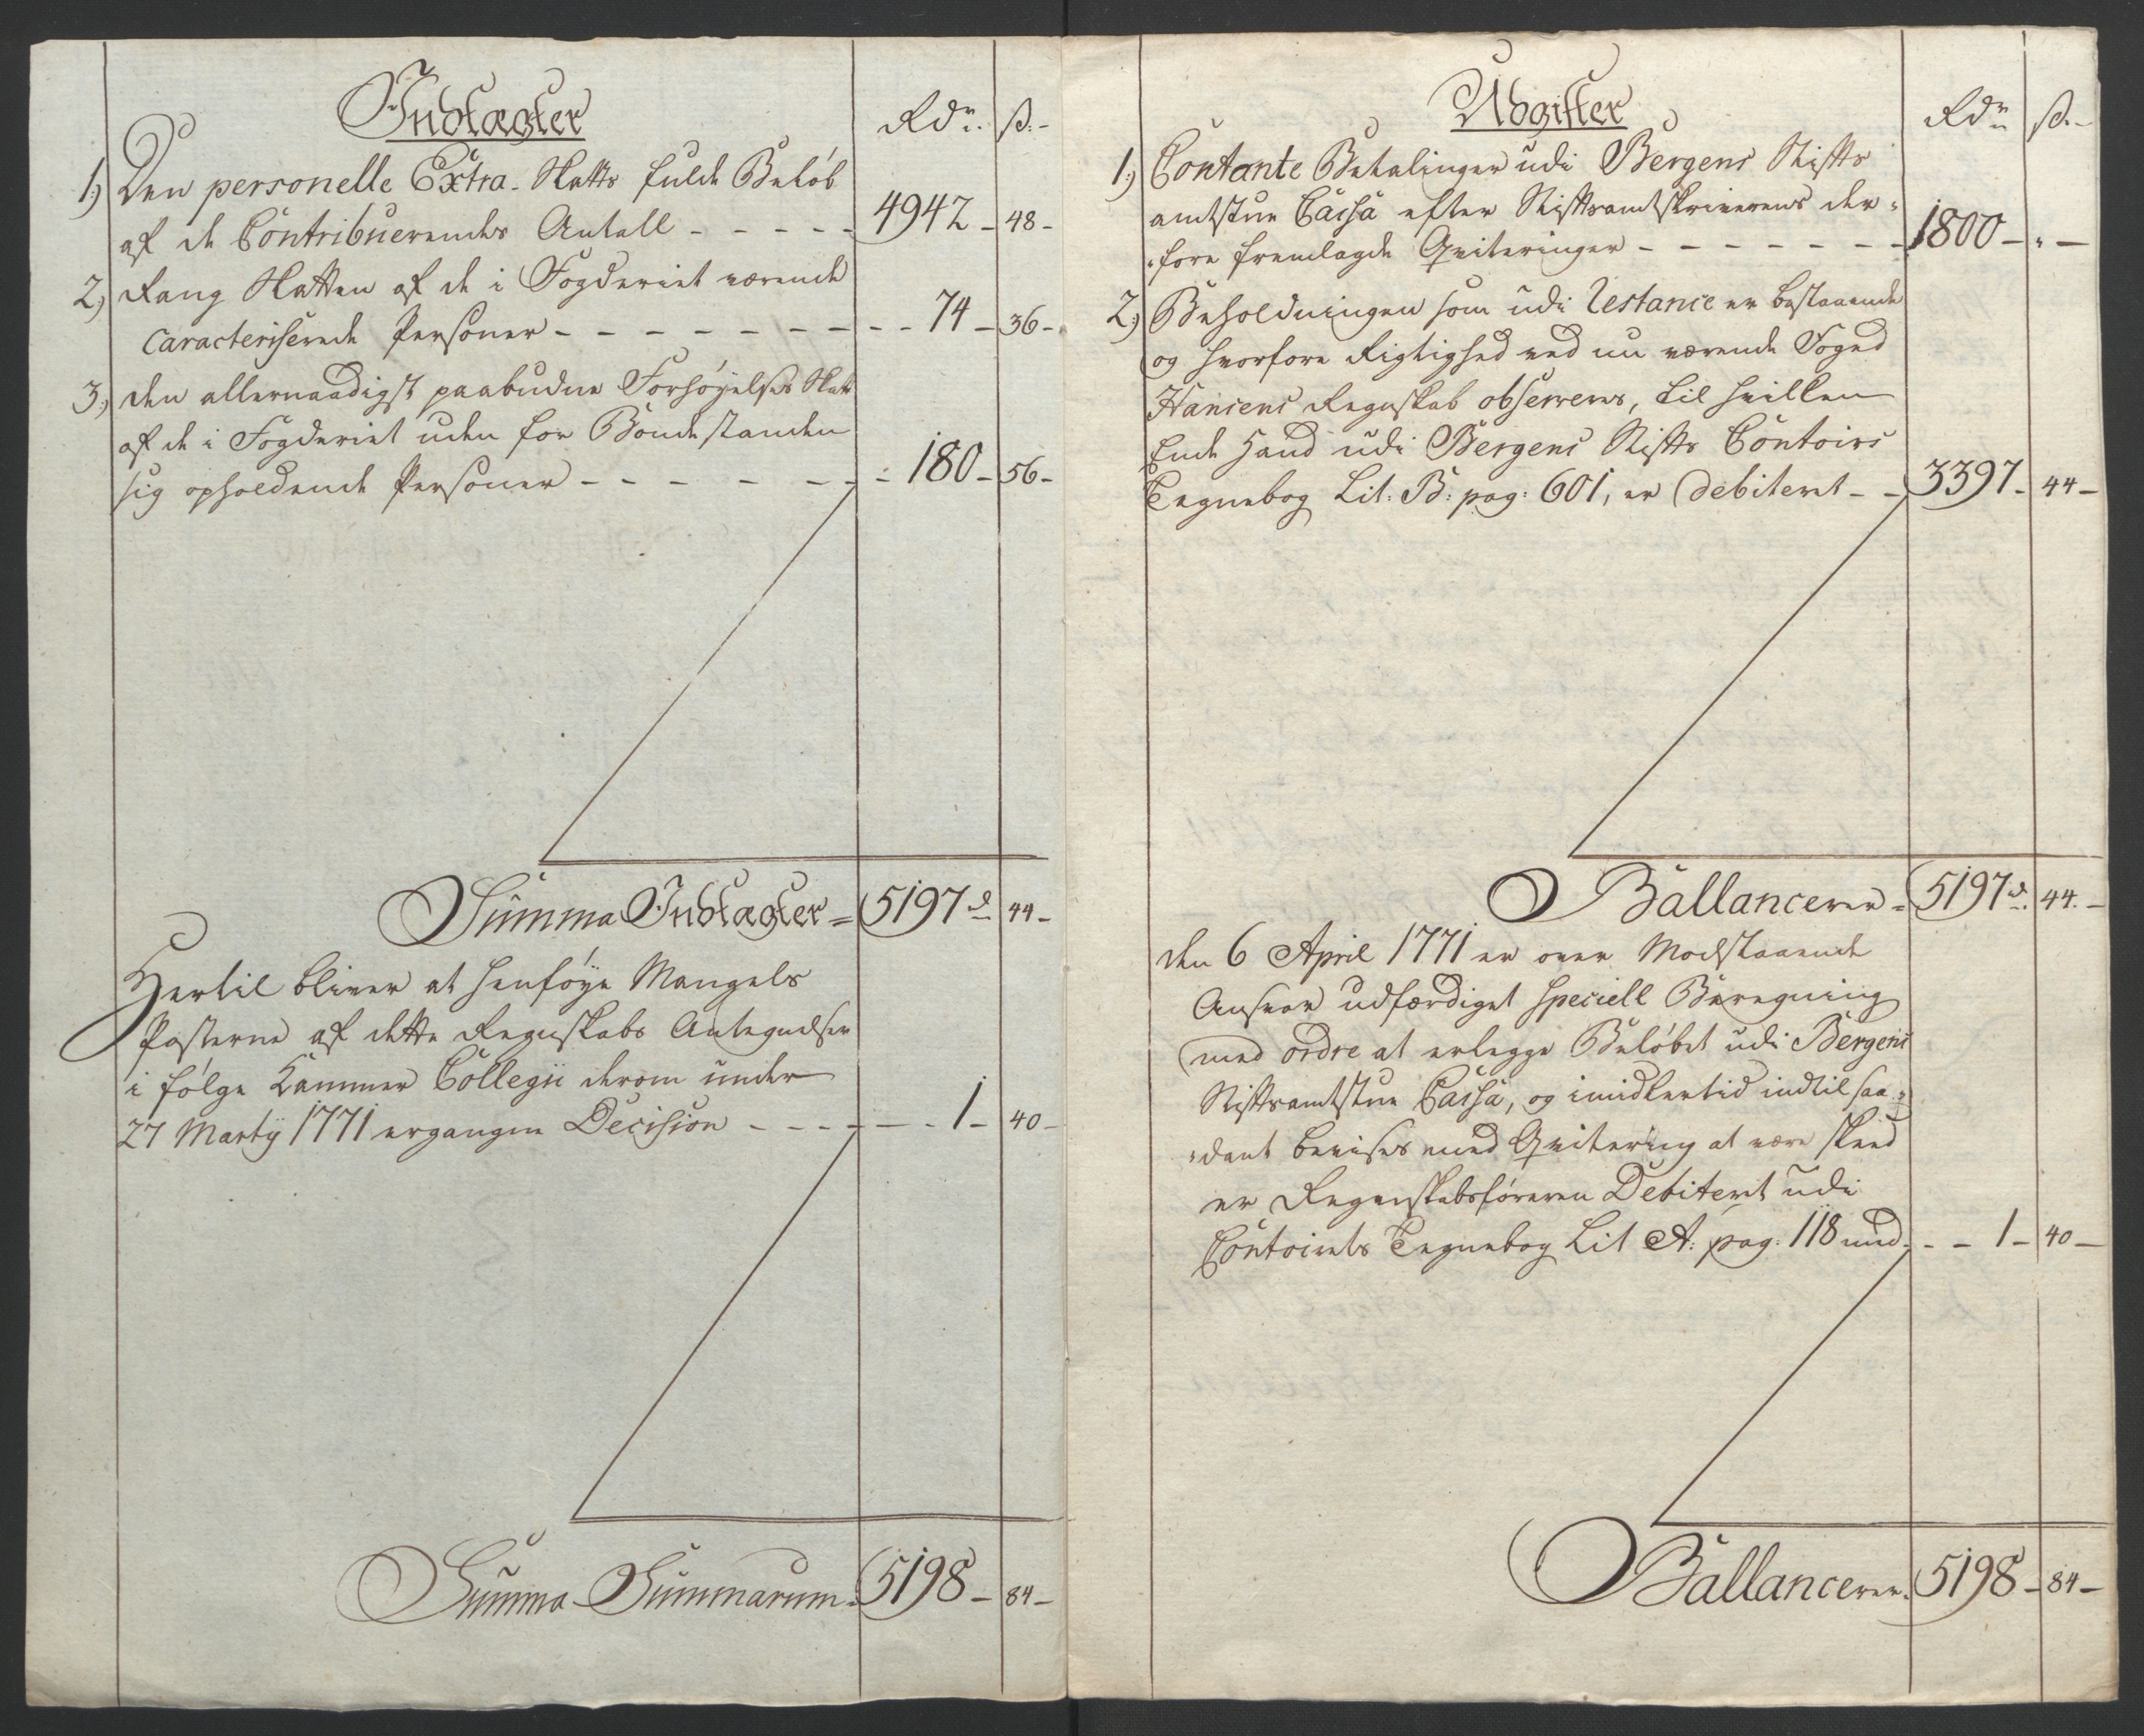 Indtægter
Rdr. ß.
1.) Den personelle Extra-Skatts fulde Beløb
af de Contribuerendes Antall - - - - - 4942 - 48 -
2.) Rang Skatten af de i Fogderiet værende
Caracteriserede Personer - - - - - - - - - 74 - 36 -
3.) den allernaadigst paabudne Forhøyelses Skatt
af de i Fogderiet uden for Bondestanden
sig opholdende Personer - - - - - - - 180 - 56 -
Summa Indtægter = 5197 d 44 -
Hertil bliver at henføye Mangels
Posterne af dette Regnskabs Antegnelser
i følge Kammer Collegii derom under
27 Martij 1771 ergangne Decision - - - - - - 1 - 40 -
Summa Summarum - 5198 - 84 -
Udgifter
Rdr. ß.
1.) Contante Betalinger udi Bergens Stifts
amtstue Cassa efter Stiftsamtskriverens der-
-fore fremlagde Qviteringer - - - - - - - 1800 - " -
2.) Beholdningen som udi Restance er bestaaende
og hvorfore Rigtighed ved nu værende Foged
Hansens Regnskab observeres, til hvilken
Ende Hand udi Bergens Stifts Contoirs
Tegnebog Lit: B: pag: 601, er debiteret - - 3397 - 44 -
Ballancerer = 5197 d. 44. -
den 6 April 1771 er over Modstaaende
Ansvar udfærdiget speciell Beregning
med ordre at erlegge Beløbet udi Bergens
Stiftsamtstue Cassa, og imidlertid indtil saa-
-dant bevises med Qvitering at være skeed
er Regnskabsføreren Debiteret udi
Contoirets Tegnebog Lit A: pag: 118 med - - - 1 - 40 -
Ballancerer - 5198 - 84 -